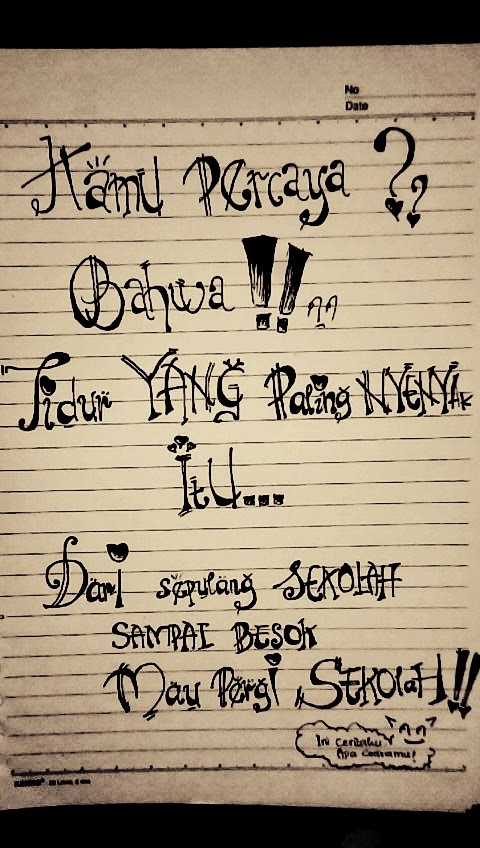 No
Date
Kamu Percaya ??
Bahwa !!
Tidur YANG Paling NYENYAK
ItU...
Dari sepulang SEKOLAH
SAMPAI BESOK
Mau Pergi SEKOLaH!!
Ini ceritaku
Apa ceritamu?